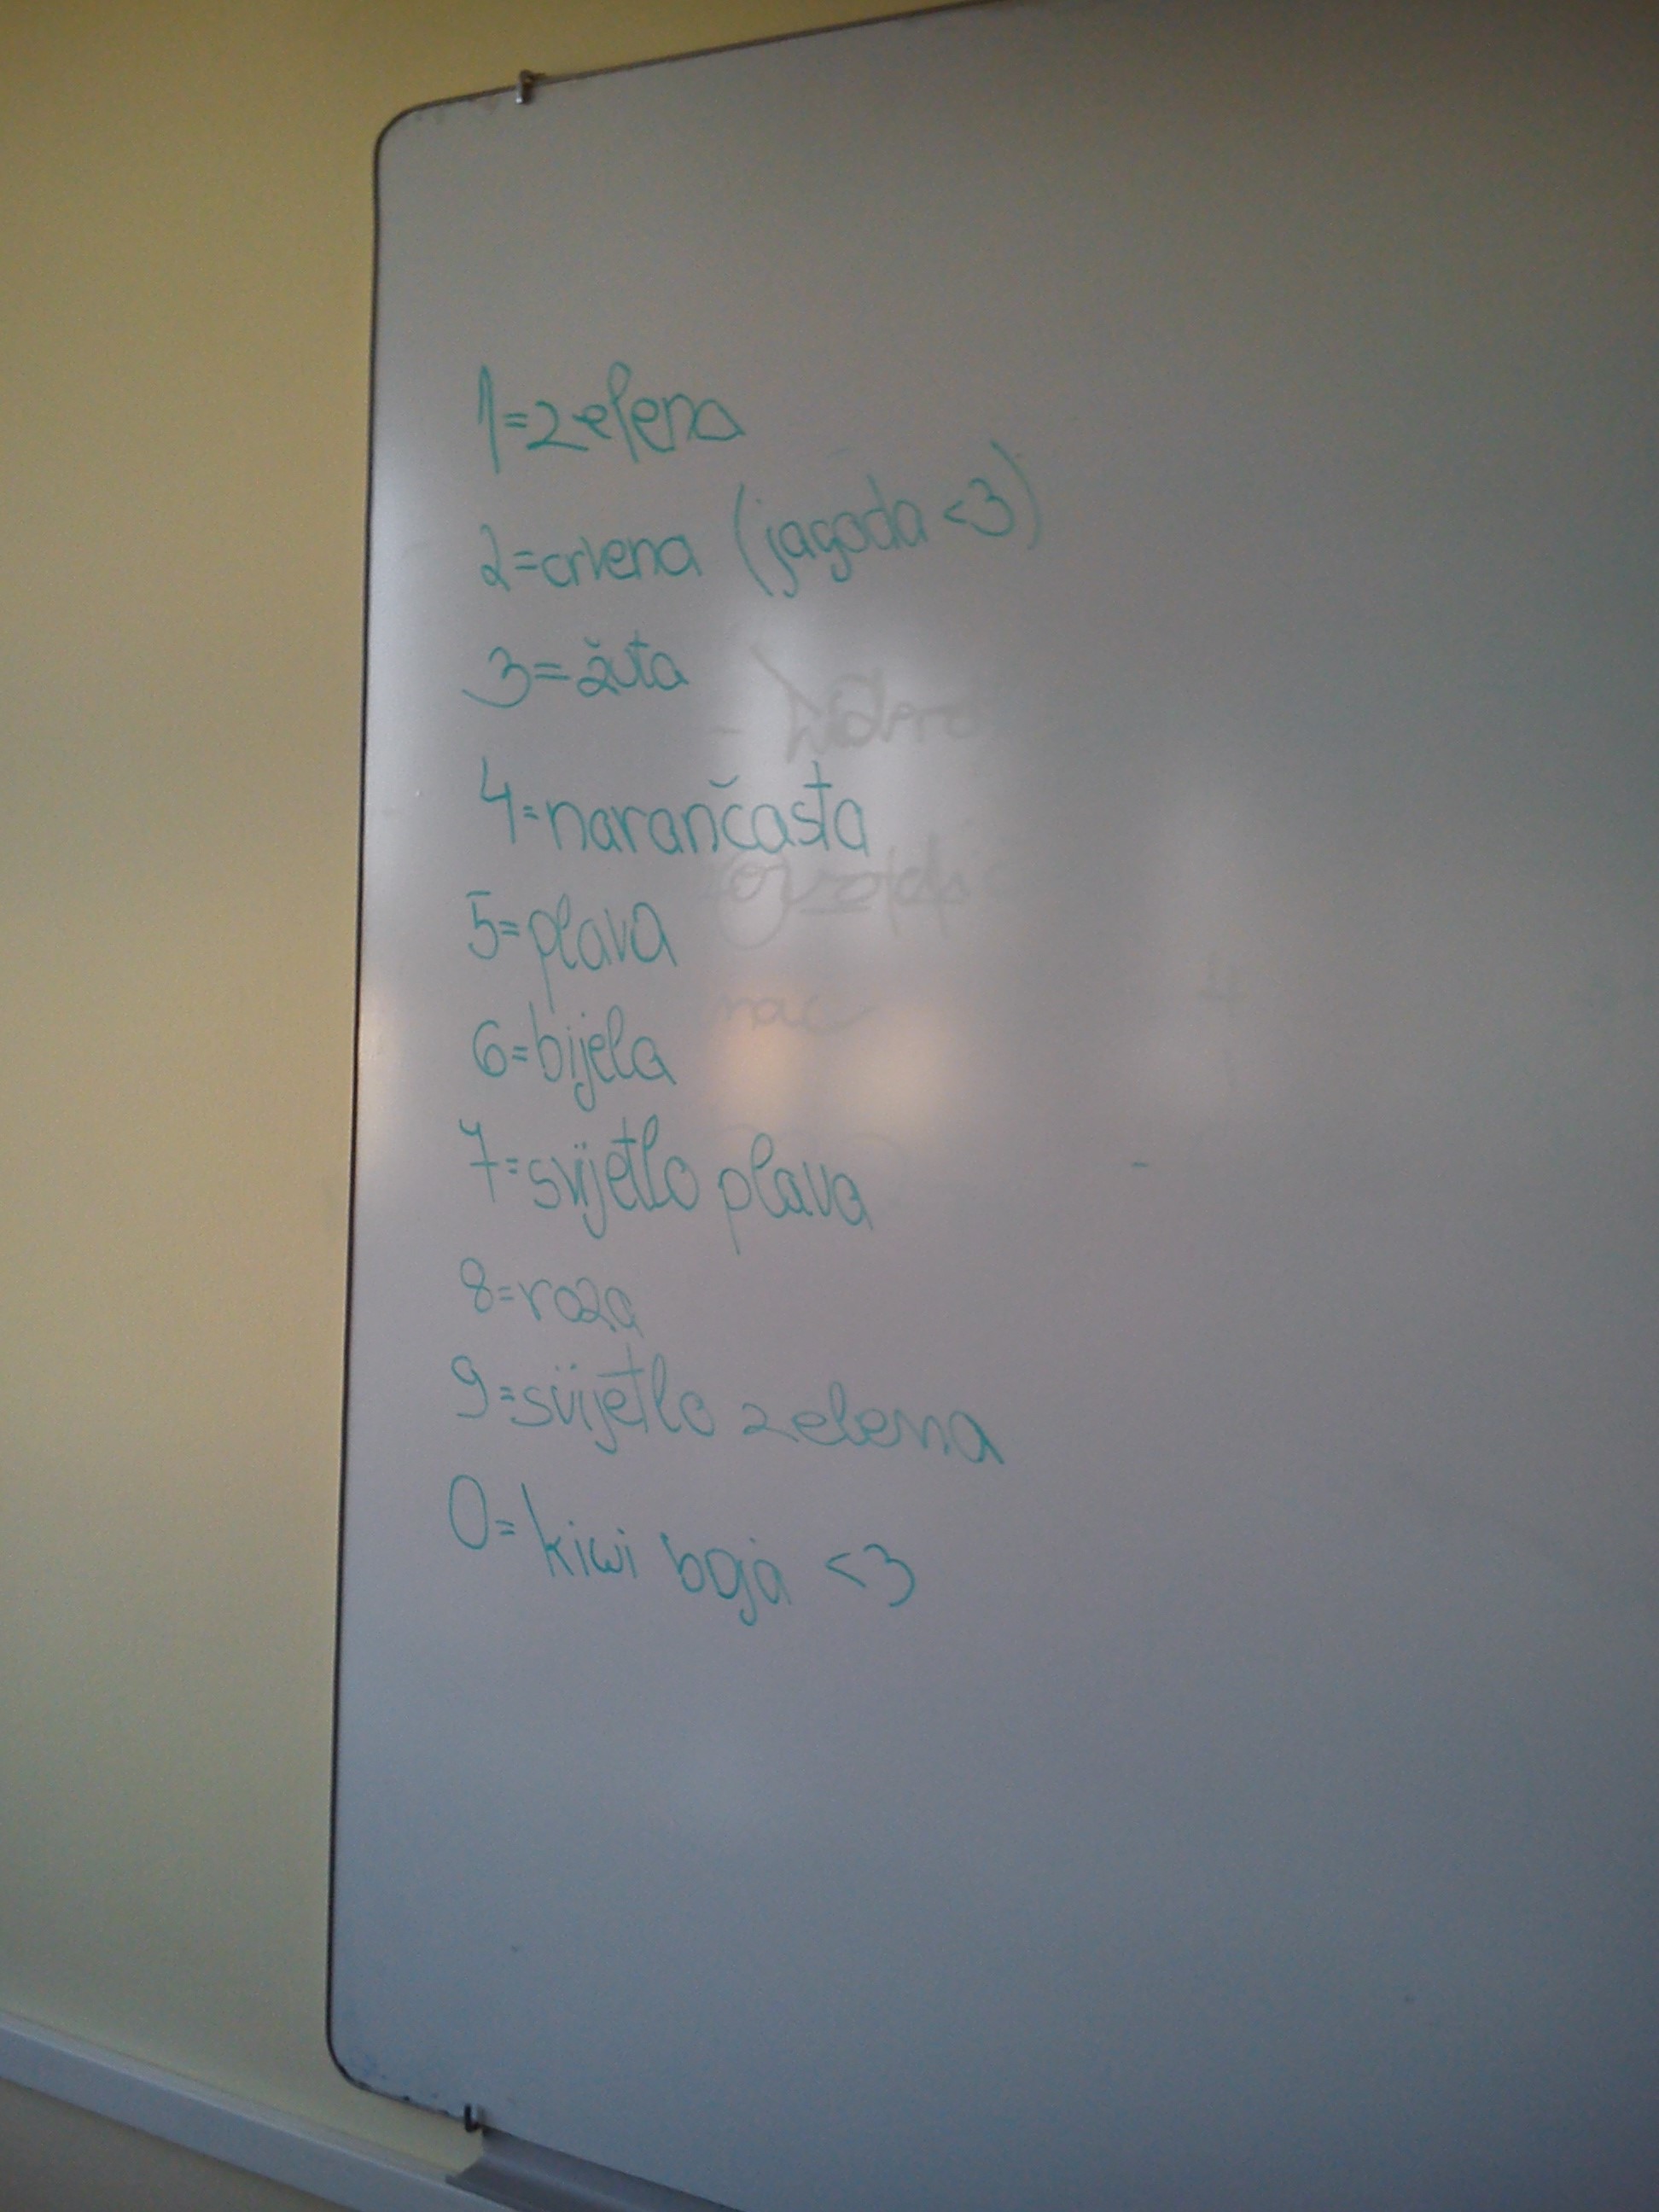 1=zelena
2=crvena (jagoda <3)
3=žuta
4=narančasta
5=plava
6=bijela
7=svijetlo plava
8=roza
9=svijetlo zelena
0=kiwi boja <3